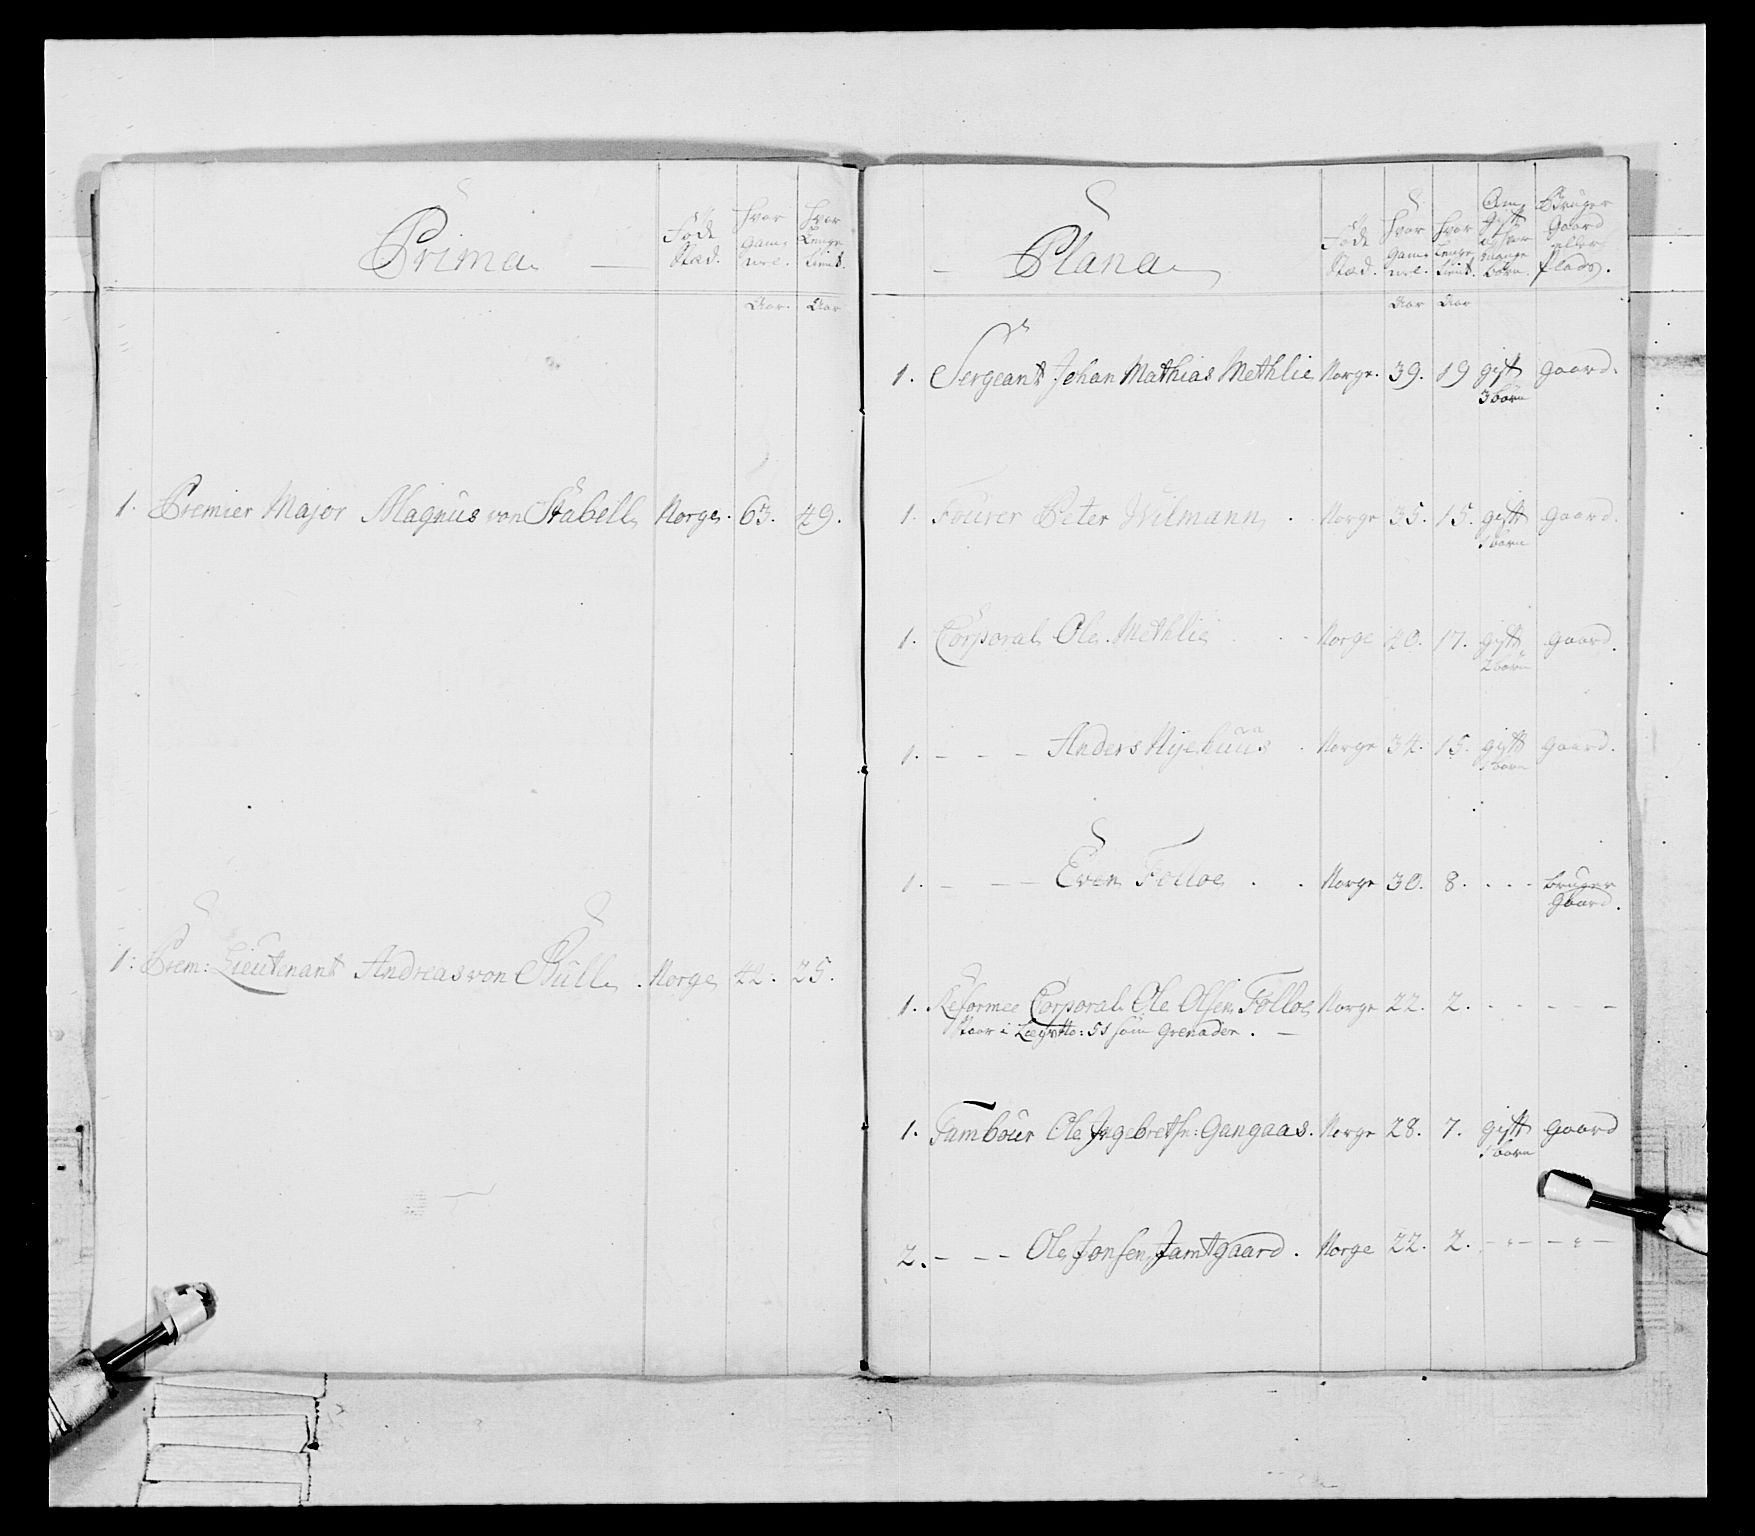 Prima
Føde
Stæd.
Hvor
Gam-
mel.
Hvor
Lenge
tient.
Aar.
Aar
1. Premier Major Magnus von Stabell Norge. 63. 49.
1: Prem: Lieutenant Andreas von Bull. Norge 42. 25.
Plana
Føde
Stæd.
Hvor
Gam-
mel.
Hvor
Lenge
tient.
Om
Gift
og hvor
mange
børn.
Bruger
Gaard
eller
Plads.
Aar
Aar
1. Sergeant Johan Mathias Methlie Norge. 39. 19 gift Gaard.
3 børn
1. Fourer Peter Wilmann. Norge 35. 15. gift Gaard.
1 børn
1. Corporal Ole Methlie Norge 40. 17. gift Gaard.
2 børn
1. - - - Anders Nyehuus. Norge 34. 15. gift Gaard.
1 børn
1. - - - Even Folloe . . Norge 30. 8. . . . bruger
Gaard.
1. Reformee Corporal Ole Olsen Folloe Norge 22. 2. - - - - -
Staar i Lægd No: 51 som Grenader. -
1. Tambour Ole Ingebretsn: Gangaas. Norge 28. 7. gift Gaard
1 børn
2. - - - Ole Jonsen Jamtgaard. Norge 22. 2. - - - -